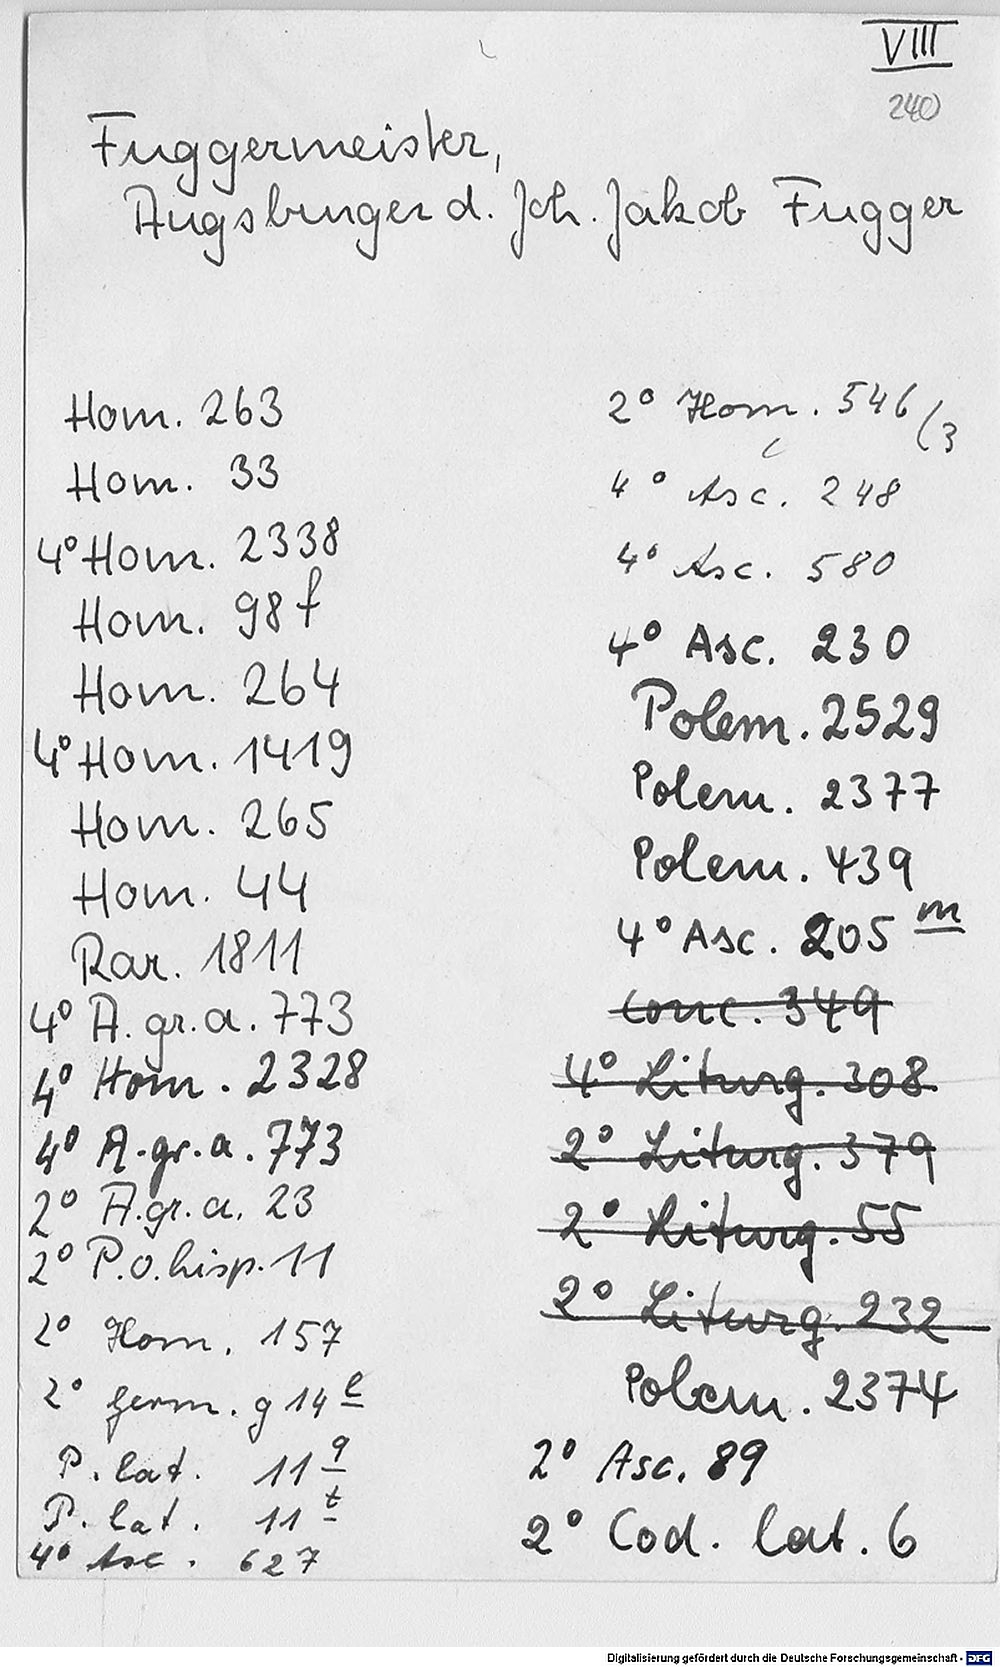 VIII
240
Fuggermeister,
Augsburger d. Joh. Jakob Fugger
Hom. 263
Hom. 33
4° Hom. 2338
Hom. 98 f
Hom. 264
4° Hom. 1419
Hom. 265
Hom. 44
Rar. 1811
4° A. gr. a. 773
4° Hom. 2328
4° A. gr. a. 773
2° A. gr. a. 23
2° P. o. hisp. 11
2° Hom. 157
2° Germ. g 14 l
P. lat. 11 q
P. lat. 11 t
4° Asc. 627
2° Hom. 546/3
4° Asc. 248
4° Asc. 580
4° Asc. 230
Polem. 2529
Polem. 2377
Polem. 439
4° Asc. 205 m
Conc. 349
4° Liturg. 308
2° Liturg. 379
2° Liturg. 55
2° Liturg. 232
Polem. 2374
2° Asc. 89
2° Cod. lat. 6
Digitalisierung gefördert durch die Deutsche Forschungsgemeinschaft - DFG